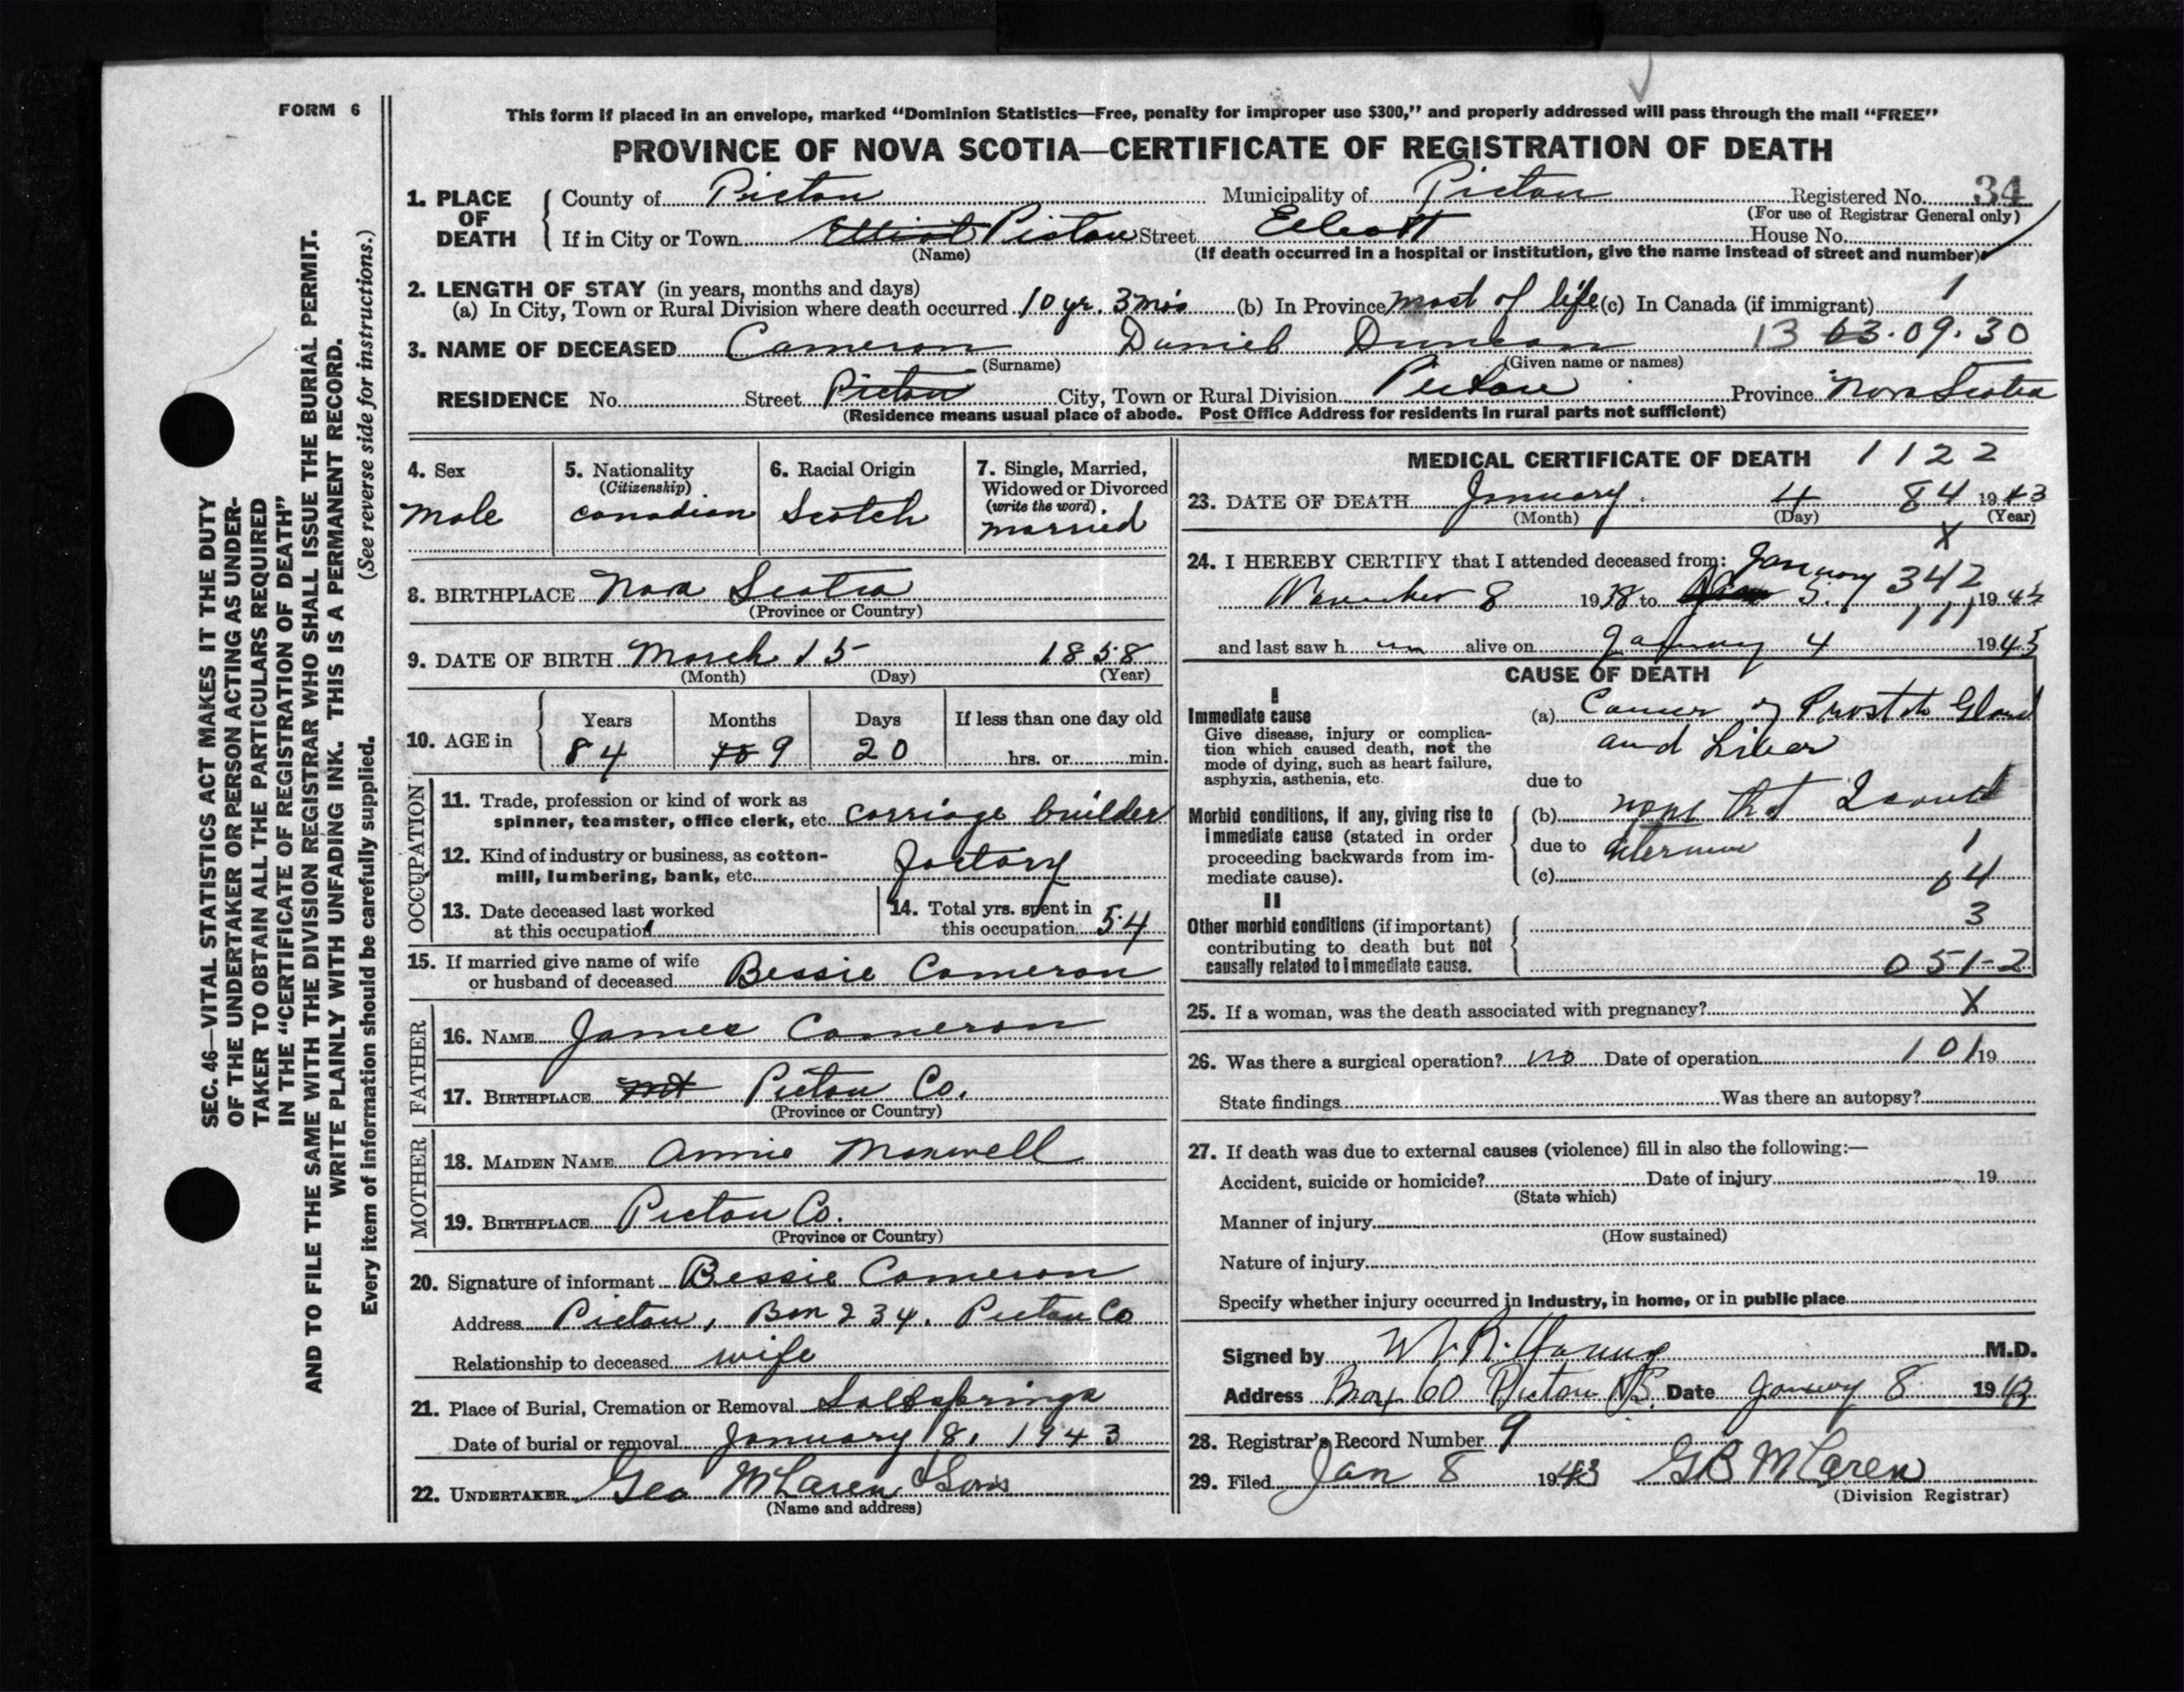 FORM 6
This form if placed in an envelope, marked “Dominion Statistics—Free, penalty for improper use $300,” and properly addressed will pass through the mail “FREE”
PROVINCE OF NOVA SCOTIA—CERTIFICATE OF REGISTRATION OF DEATH
SEC. 46—VITAL STATISTICS ACT MAKES IT THE DUTY
OF THE UNDERTAKER OR PERSON ACTING AS UNDER-
TAKER TO OBTAIN ALL THE PARTICULARS REQUIRED
IN THE “CERTIFICATE OF REGISTRATION OF DEATH”
AND TO FILE THE SAME WITH THE DIVISION REGISTRAR WHO SHALL ISSUE THE BURIAL PERMIT.
WRITE PLAINLY WITH UNFADING INK. THIS IS A PERMANENT RECORD.
Every item of information should be carefully supplied. (See reverse side for instructions.)
1. PLACE OF DEATH
County of Pictou Municipality of Pictou Registered No. 34
(For use of Registrar General only)
If in City or Town Elliot Pictou Street Elliott House No.
(Name) (If death occurred in a hospital or institution, give the name instead of street and number)
2. LENGTH OF STAY (in years, months and days)
(a) In City, Town or Rural Division where death occurred 10 yr. 3 mos (b) In Province most of life (c) In Canada (if immigrant) 1
3. NAME OF DECEASED Cameron Daniel Duncan 13 63.09.30
(Surname) (Given name or names)
RESIDENCE No. Street Pictou City, Town or Rural Division Pictou Province Nova Scotia
(Residence means usual place of abode. Post Office Address for residents in rural parts not sufficient)
4. Sex
Male
5. Nationality
(Citizenship)
Canadian
6. Racial Origin
Scotch
7. Single, Married,
Widowed or Divorced
(write the word)
married
8. BIRTHPLACE Nova Scotia
(Province or Country)
9. DATE OF BIRTH March 15 1858
(Month) (Day) (Year)
10. AGE in
Years Months Days If less than one day old
84 10 9 20 hrs. or min.
OCCUPATION
11. Trade, profession or kind of work as
spinner, teamster, office clerk, etc. carriage builder
12. Kind of industry or business, as cotton-
mill, lumbering, bank, etc. factory
13. Date deceased last worked
at this occupation
14. Total yrs. spent in
this occupation 54
15. If married give name of wife
or husband of deceased Bessie Cameron
FATHER
16. NAME James Cameron
17. BIRTHPLACE Mt Pictou Co.
(Province or Country)
MOTHER
18. MAIDEN NAME Annie Maxwell
19. BIRTHPLACE Pictou Co.
(Province or Country)
20. Signature of informant Bessie Cameron
Address Pictou, Box 234, Pictou Co
Relationship to deceased wife
21. Place of Burial, Cremation or Removal Saltsprings
Date of burial or removal January 8, 1943
22. UNDERTAKER Geo McLaren & Sons
(Name and address)
MEDICAL CERTIFICATE OF DEATH 1122
23. DATE OF DEATH January 4 84 1943
(Month) (Day) (Year)
X
24. I HEREBY CERTIFY that I attended deceased from: January 342
November 8 1938 to 5. 19
111
and last saw h im alive on January 4 19
CAUSE OF DEATH
I
Immediate cause
Give disease, injury or complica-
tion which caused death, not the
mode of dying, such as heart failure,
asphyxia, asthenia, etc.
(a) Cancer of Prostate Gland
and Liver
due to
Morbid conditions, if any, giving rise to
immediate cause (stated in order
proceeding backwards from im-
mediate cause).
(b) none that I could
due to determine 1
(c) 64
II
Other morbid conditions (if important)
contributing to death but not
causally related to immediate cause.
3
051-2
25. If a woman, was the death associated with pregnancy? X
26. Was there a surgical operation? no Date of operation 101 19
State findings Was there an autopsy?
27. If death was due to external causes (violence) fill in also the following:—
Accident, suicide or homicide? Date of injury 19
(State which)
Manner of injury
(How sustained)
Nature of injury
Specify whether injury occurred in Industry, in home, or in public place
Signed by W. R. Young M.D.
Address Box 60 Pictou N.S. Date January 8 19
28. Registrar's Record Number 9
29. Filed Jan 8 1943 GB McLaren
(Division Registrar)